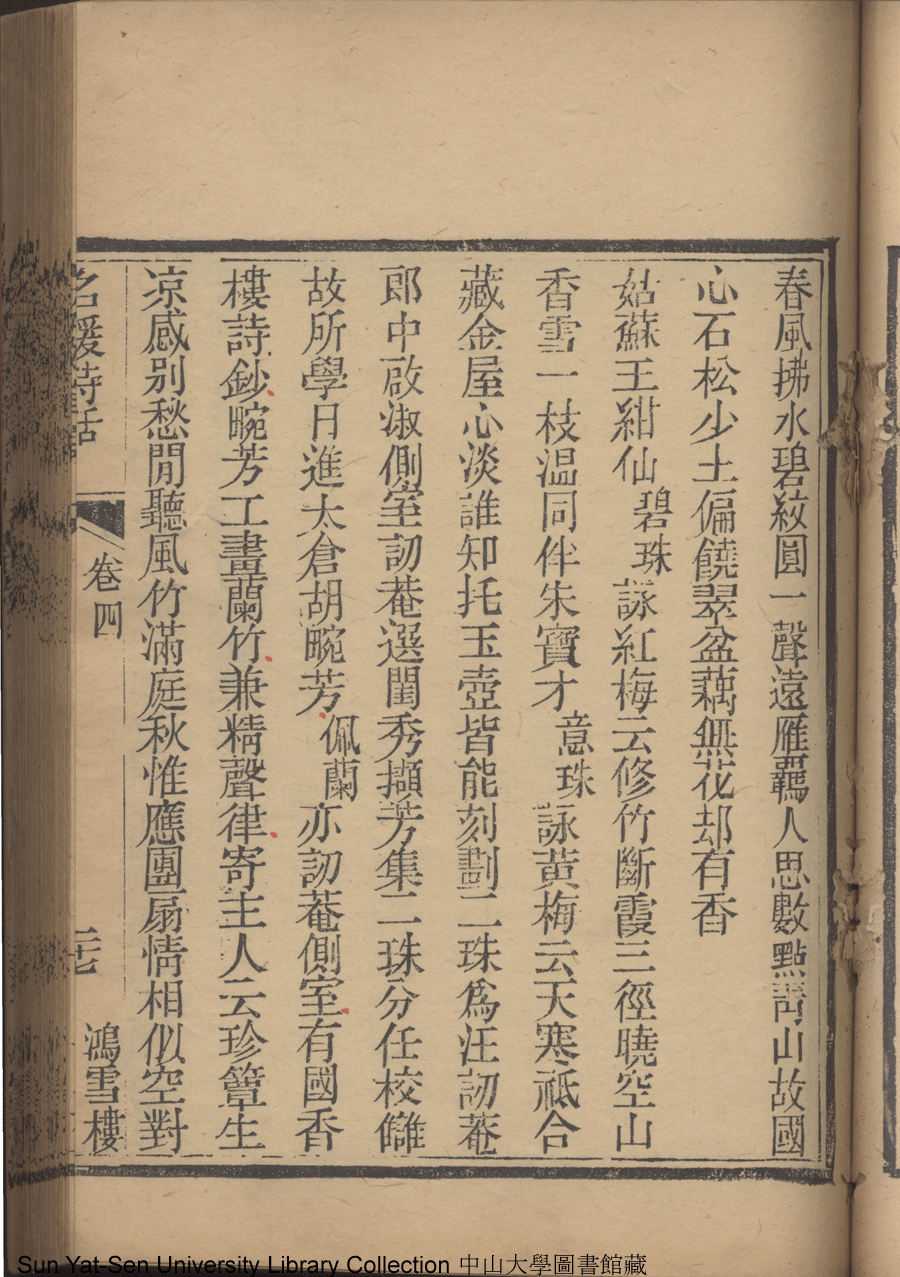 春風拂水碧紋圓一聲遠雁羈人思數點青山故國
心石松少土偏饒翠盆藕無花却有香
姑蘇王紺仙碧珠詠紅梅云修竹斷霞三徑曉空山
香雪一枝温同伴朱寶才意珠詠黄梅云天寒祗合
藏金屋心淡誰知托玉壺皆能刻劃二珠為汪訒菴
郎中啟淑側室訒菴選閨秀擷芳集二珠分任校讎
故所學日進太倉胡畹芳佩蘭亦訒菴側室有國香
樓詩鈔畹芳工畫蘭竹兼精聲律寄主人云珍簟生
凉感別愁閒聽風竹滿庭秋惟應團扇情相似空對
名媛詩話 卷四 二七 鴻雪樓
Sun Yat-Sen University Library Collection 中山大學圖書館藏